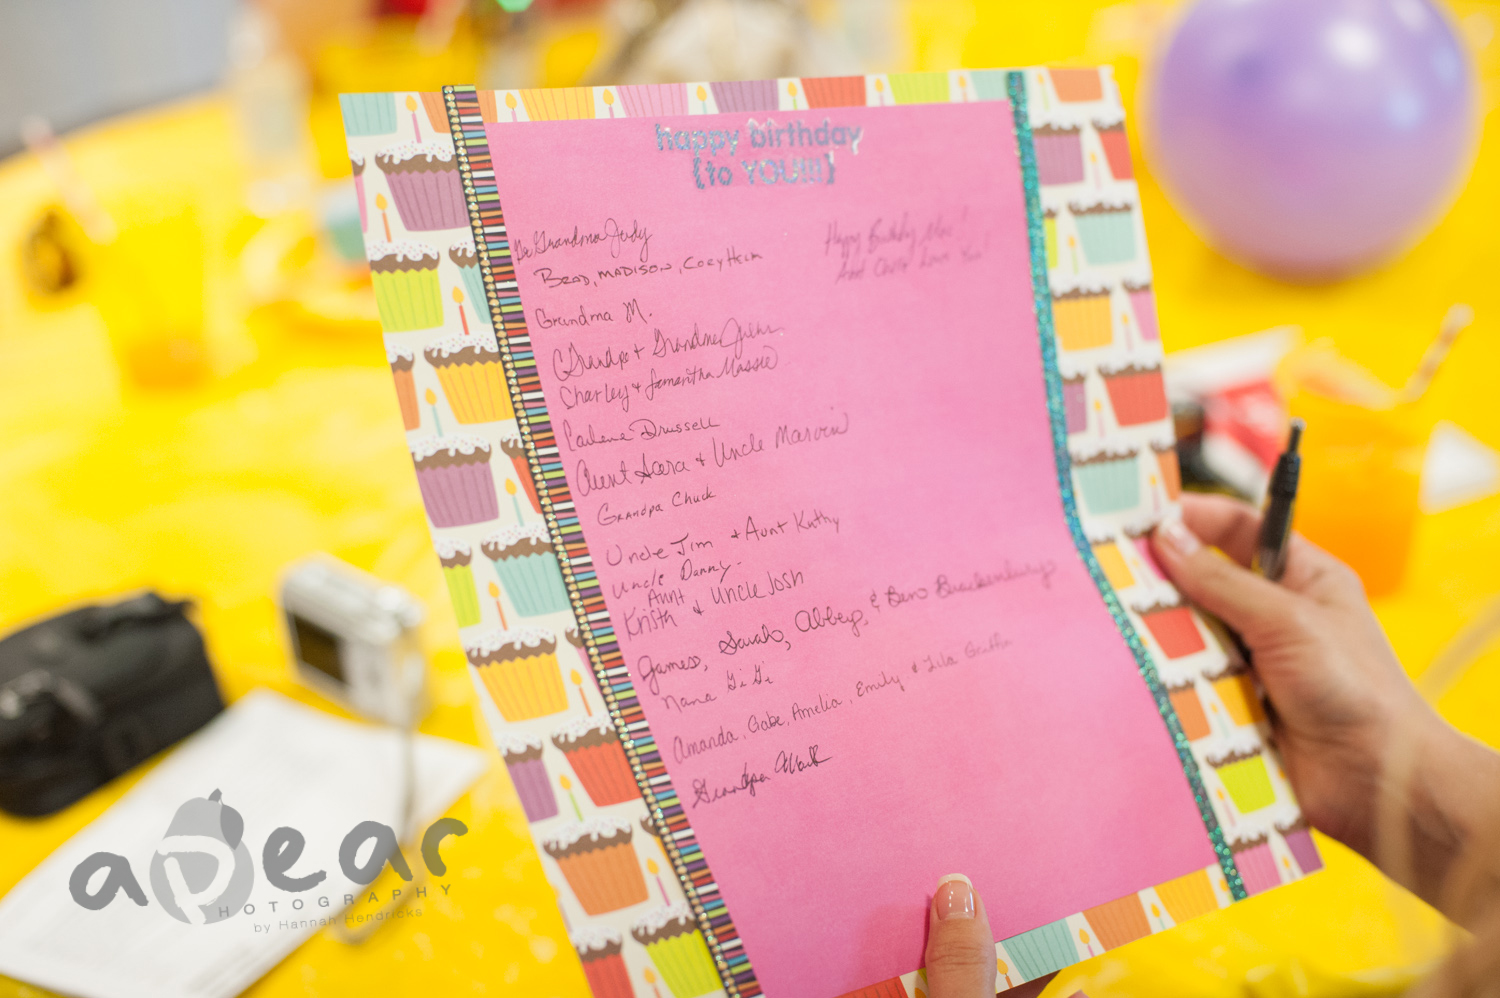 happy birthday
{to YOU!!!}
Grandma Judy
BRAD, MADISON, Corey
Happy Birthday
Love You
Grandma M.
Grandpa & Grandma
Charley & Samantha Massie
Drussell
Aunt & Uncle Marvin
Grandpa Chuck
Uncle Jim & Aunt Kathy
Uncle Danny
Aunt
Krista & Uncle Josh
James, Sarah, Abbey, & Ben
Nana GiGi
Amanda, Gabe, Amelia, Emily & Lila Griffin
Grandpa Mark
apear
PHOTOGRAPHY
by Hannah Hendricks